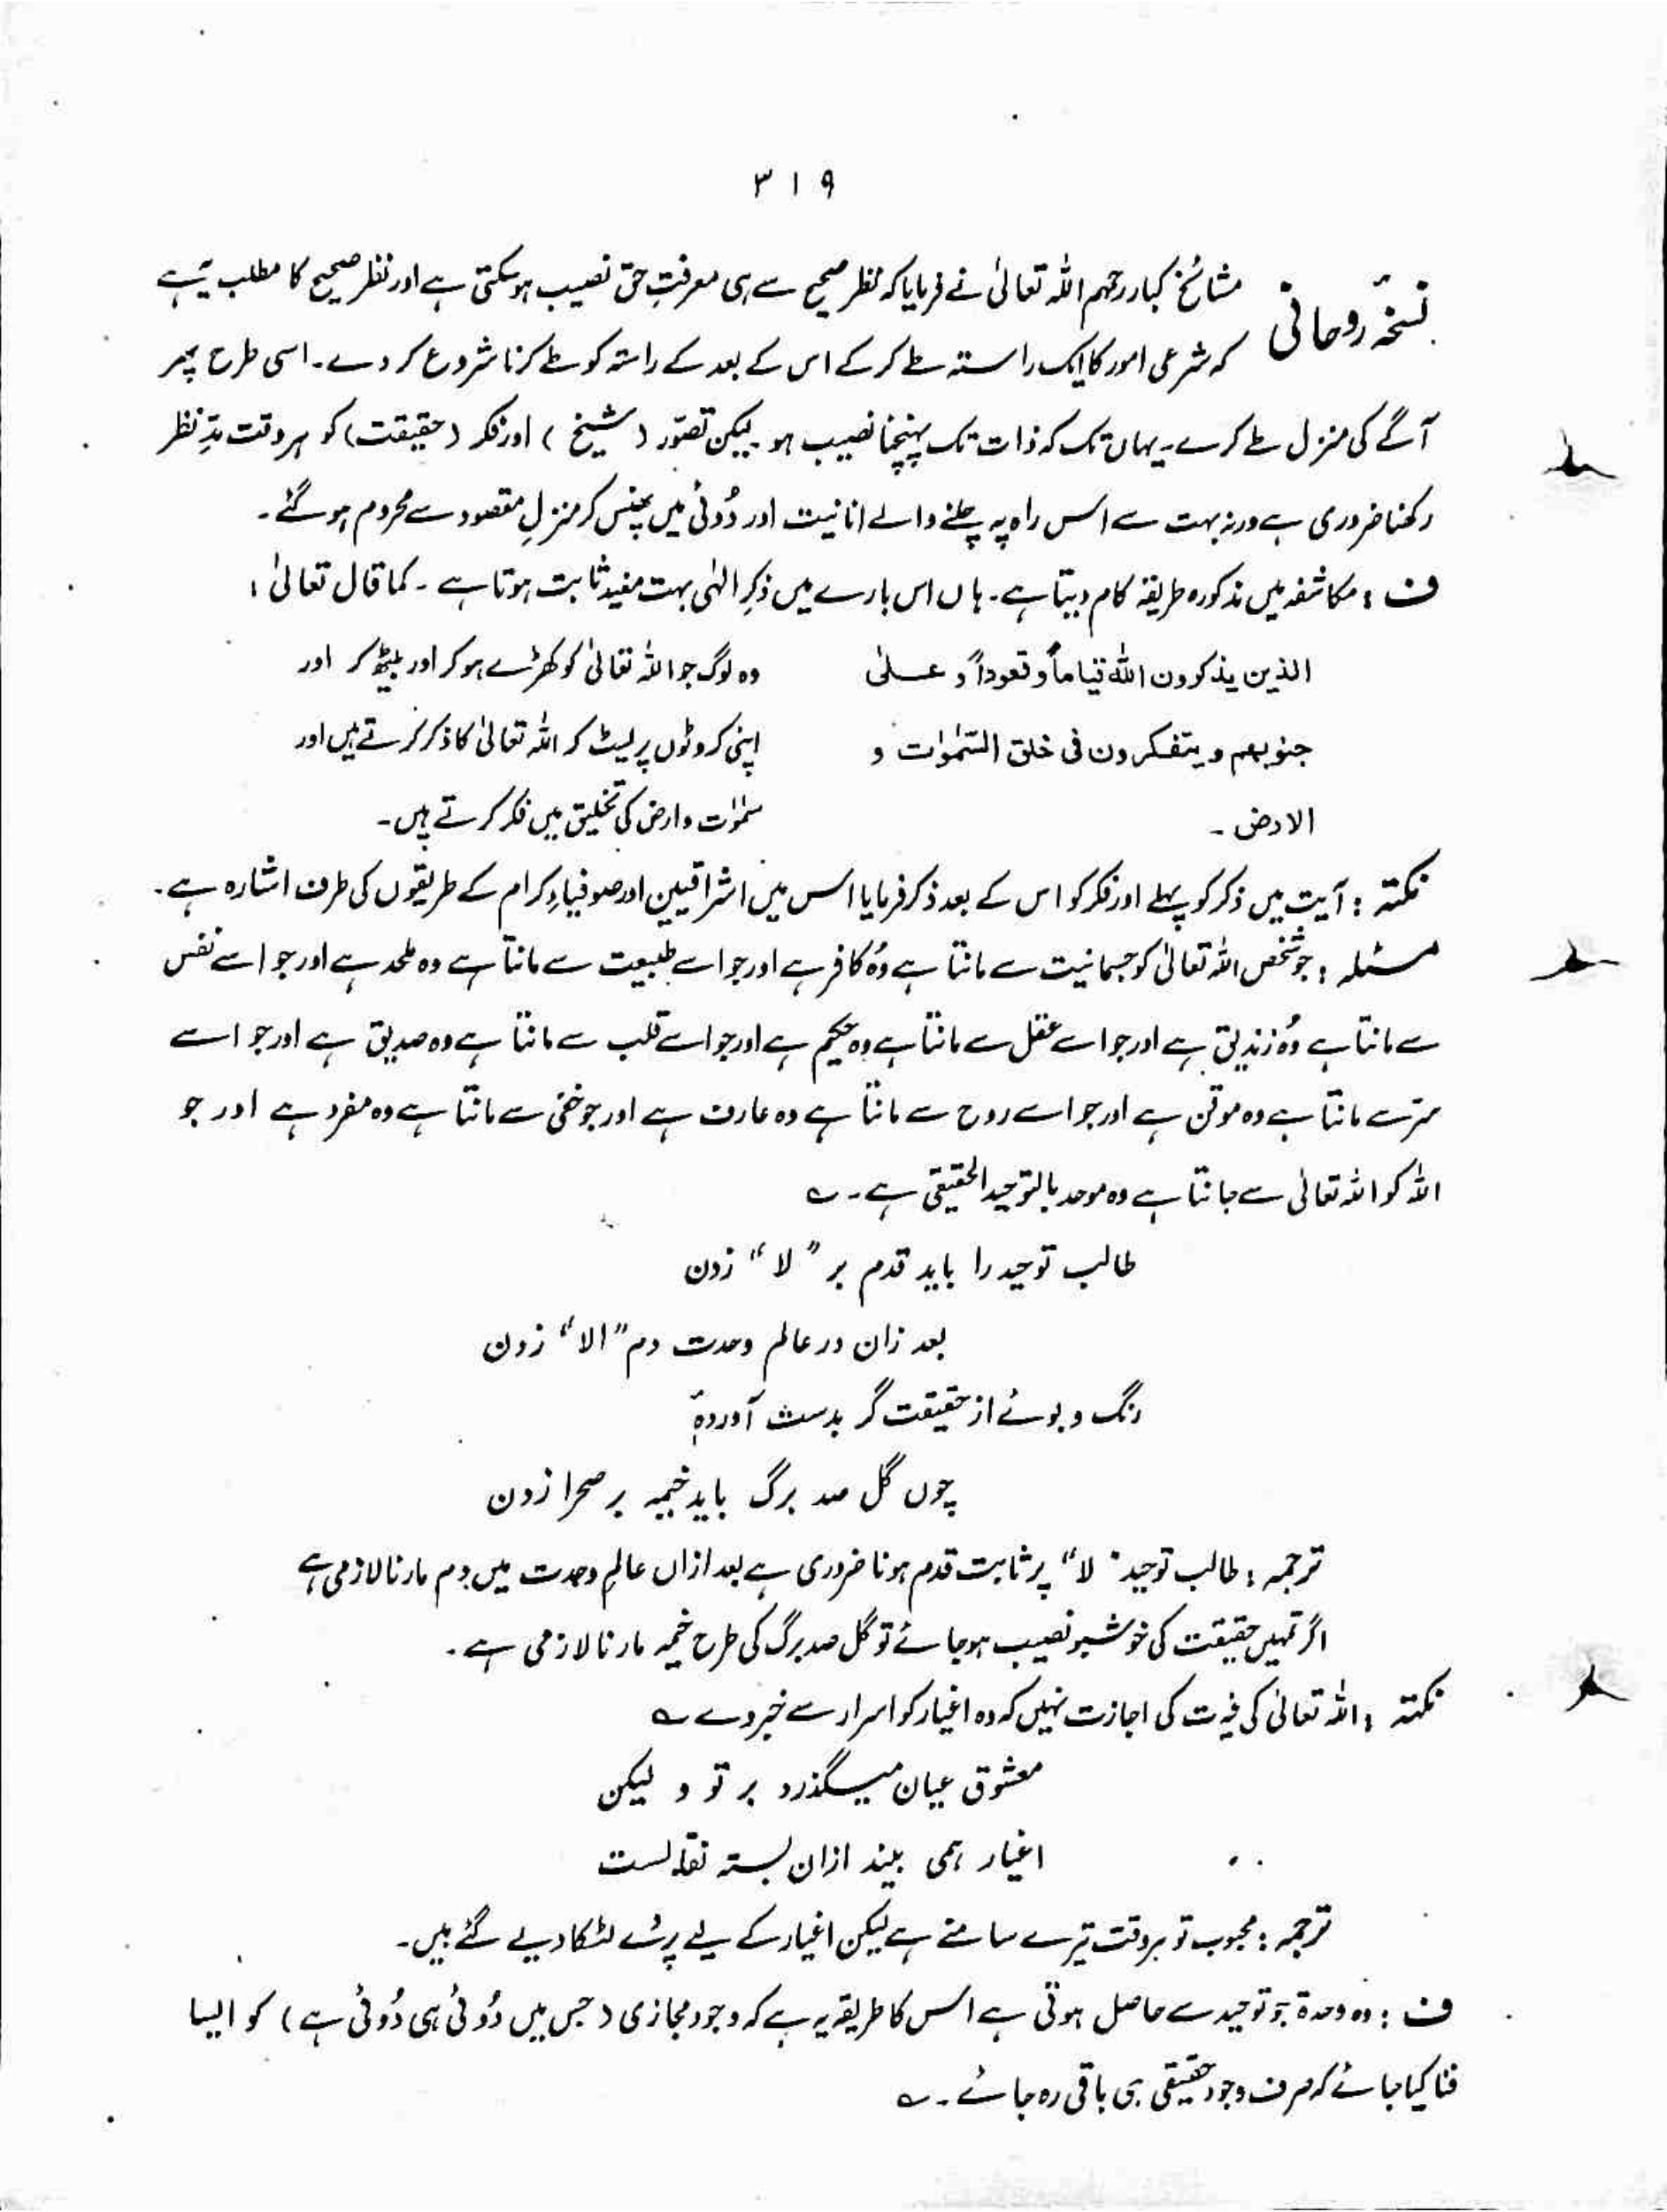 ۳۱۹
نسخۂ روحانی مشائخ کبار رحمہم اللہ تعالیٰ نے فرمایا کہ نظر صحیح سے ہی معرفتِ حق نصیب ہوسکتی ہے اور نظر صحیح کا مطلب یہ ہے
کہ شرعی امور کا ایک راستہ طے کر کے اس کے بعد کے راستہ کو طے کرنا شروع کر دے۔ اسی طرح پھر
آگے کی منزل طے کرے۔ یہاں تک کہ ذات تک پہنچنا نصیب ہو۔ لیکن تصوّر (شیخ) اور فکر (حقیقت) کو ہر وقت مدِّ نظر
رکھنا ضروری ہے ورنہ بہت سے اس راہ پہ چلنے والے انانیت اور دُوئی میں پھنس کر منزلِ مقصود سے محروم ہو گئے۔
ف : مکاشفہ میں مذکورہ طریقہ کام دیتا ہے۔ ہاں اس بارے میں ذکرِ الٰہی بہت مفید ثابت ہوتا ہے۔ کما قال تعالیٰ :
الذین یذکرون اللہ قیاماً و قعوداً و علیٰ وہ لوگ جو اللہ تعالیٰ کو کھڑے ہو کر اور بیٹھ کر اور
جنوبھم و یتفکرون فی خلق السّمٰوٰت و اپنی کروٹوں پر لیٹ کر اللہ تعالیٰ کا ذکر کرتے ہیں اور
الارض۔ سمٰوٰت و ارض کی تخلیق میں فکر کرتے ہیں۔
نکتہ : آیت میں ذکر کو پہلے اور فکر کو اس کے بعد ذکر فرمایا اس میں اشراقیین اور صوفیاءِ کرام کے طریقوں کی طرف اشارہ ہے۔
مسئلہ : جو شخص اللہ تعالیٰ کو جسمانیت سے مانتا ہے وُہ کافر ہے اور جو اسے طبیعت سے مانتا ہے وہ ملحد ہے اور جو اسے نفس
سے مانتا ہے وُہ زندیق ہے اور جو اسے عقل سے مانتا ہے وہ حکیم ہے اور جو اسے قلب سے مانتا ہے وہ صدیق ہے اور جو اسے
سرّ سے مانتا ہے وہ موقن ہے اور جو اسے روح سے مانتا ہے وہ عارف ہے اور جو خفی سے مانتا ہے وہ مفرد ہے اور جو
اللہ کو اللہ تعالیٰ سے جانتا ہے وہ موحد بالتوحید الحقیقی ہے۔ ؎
طالب توحید را باید قدم بر "لا" زدن
بعد زان در عالم وحدت دم "الا" زدن
رنگ و بوئے از حقیقت گر بدست آوردۂ
چوں گل صد برگ باید خیمہ بر صحرا زدن
ترجمہ : طالب توحید "لا" پر ثابت قدم ہونا ضروری ہے بعد ازاں عالمِ وحدت میں دم مارنا لازمی ہے
اگر تمہیں حقیقت کی خوشبو نصیب ہو جائے تو گل صد برگ کی طرح خیمہ مارنا لازمی ہے۔
نکتہ : اللہ تعالیٰ کی غیرت کی اجازت نہیں کہ وہ اغیار کو اسرار سے خبر دے ؎
معشوق عیان میگذرد بر تو و لیکن
اغیار ہمی بیند ازان بستہ نقابست
ترجمہ : محبوب تو ہر وقت تیرے سامنے ہے لیکن اغیار کے لیے پردے لٹکا دیے گئے ہیں۔
ف : وہ وحدۃ جو توحید سے حاصل ہوتی ہے اس کا طریقہ یہ ہے کہ وجود مجازی (جس میں دُوئی ہی دُوئی ہے) کو ایسا
فنا کیا جائے کہ صرف وجود حقیقی ہی باقی رہ جائے۔ ؎